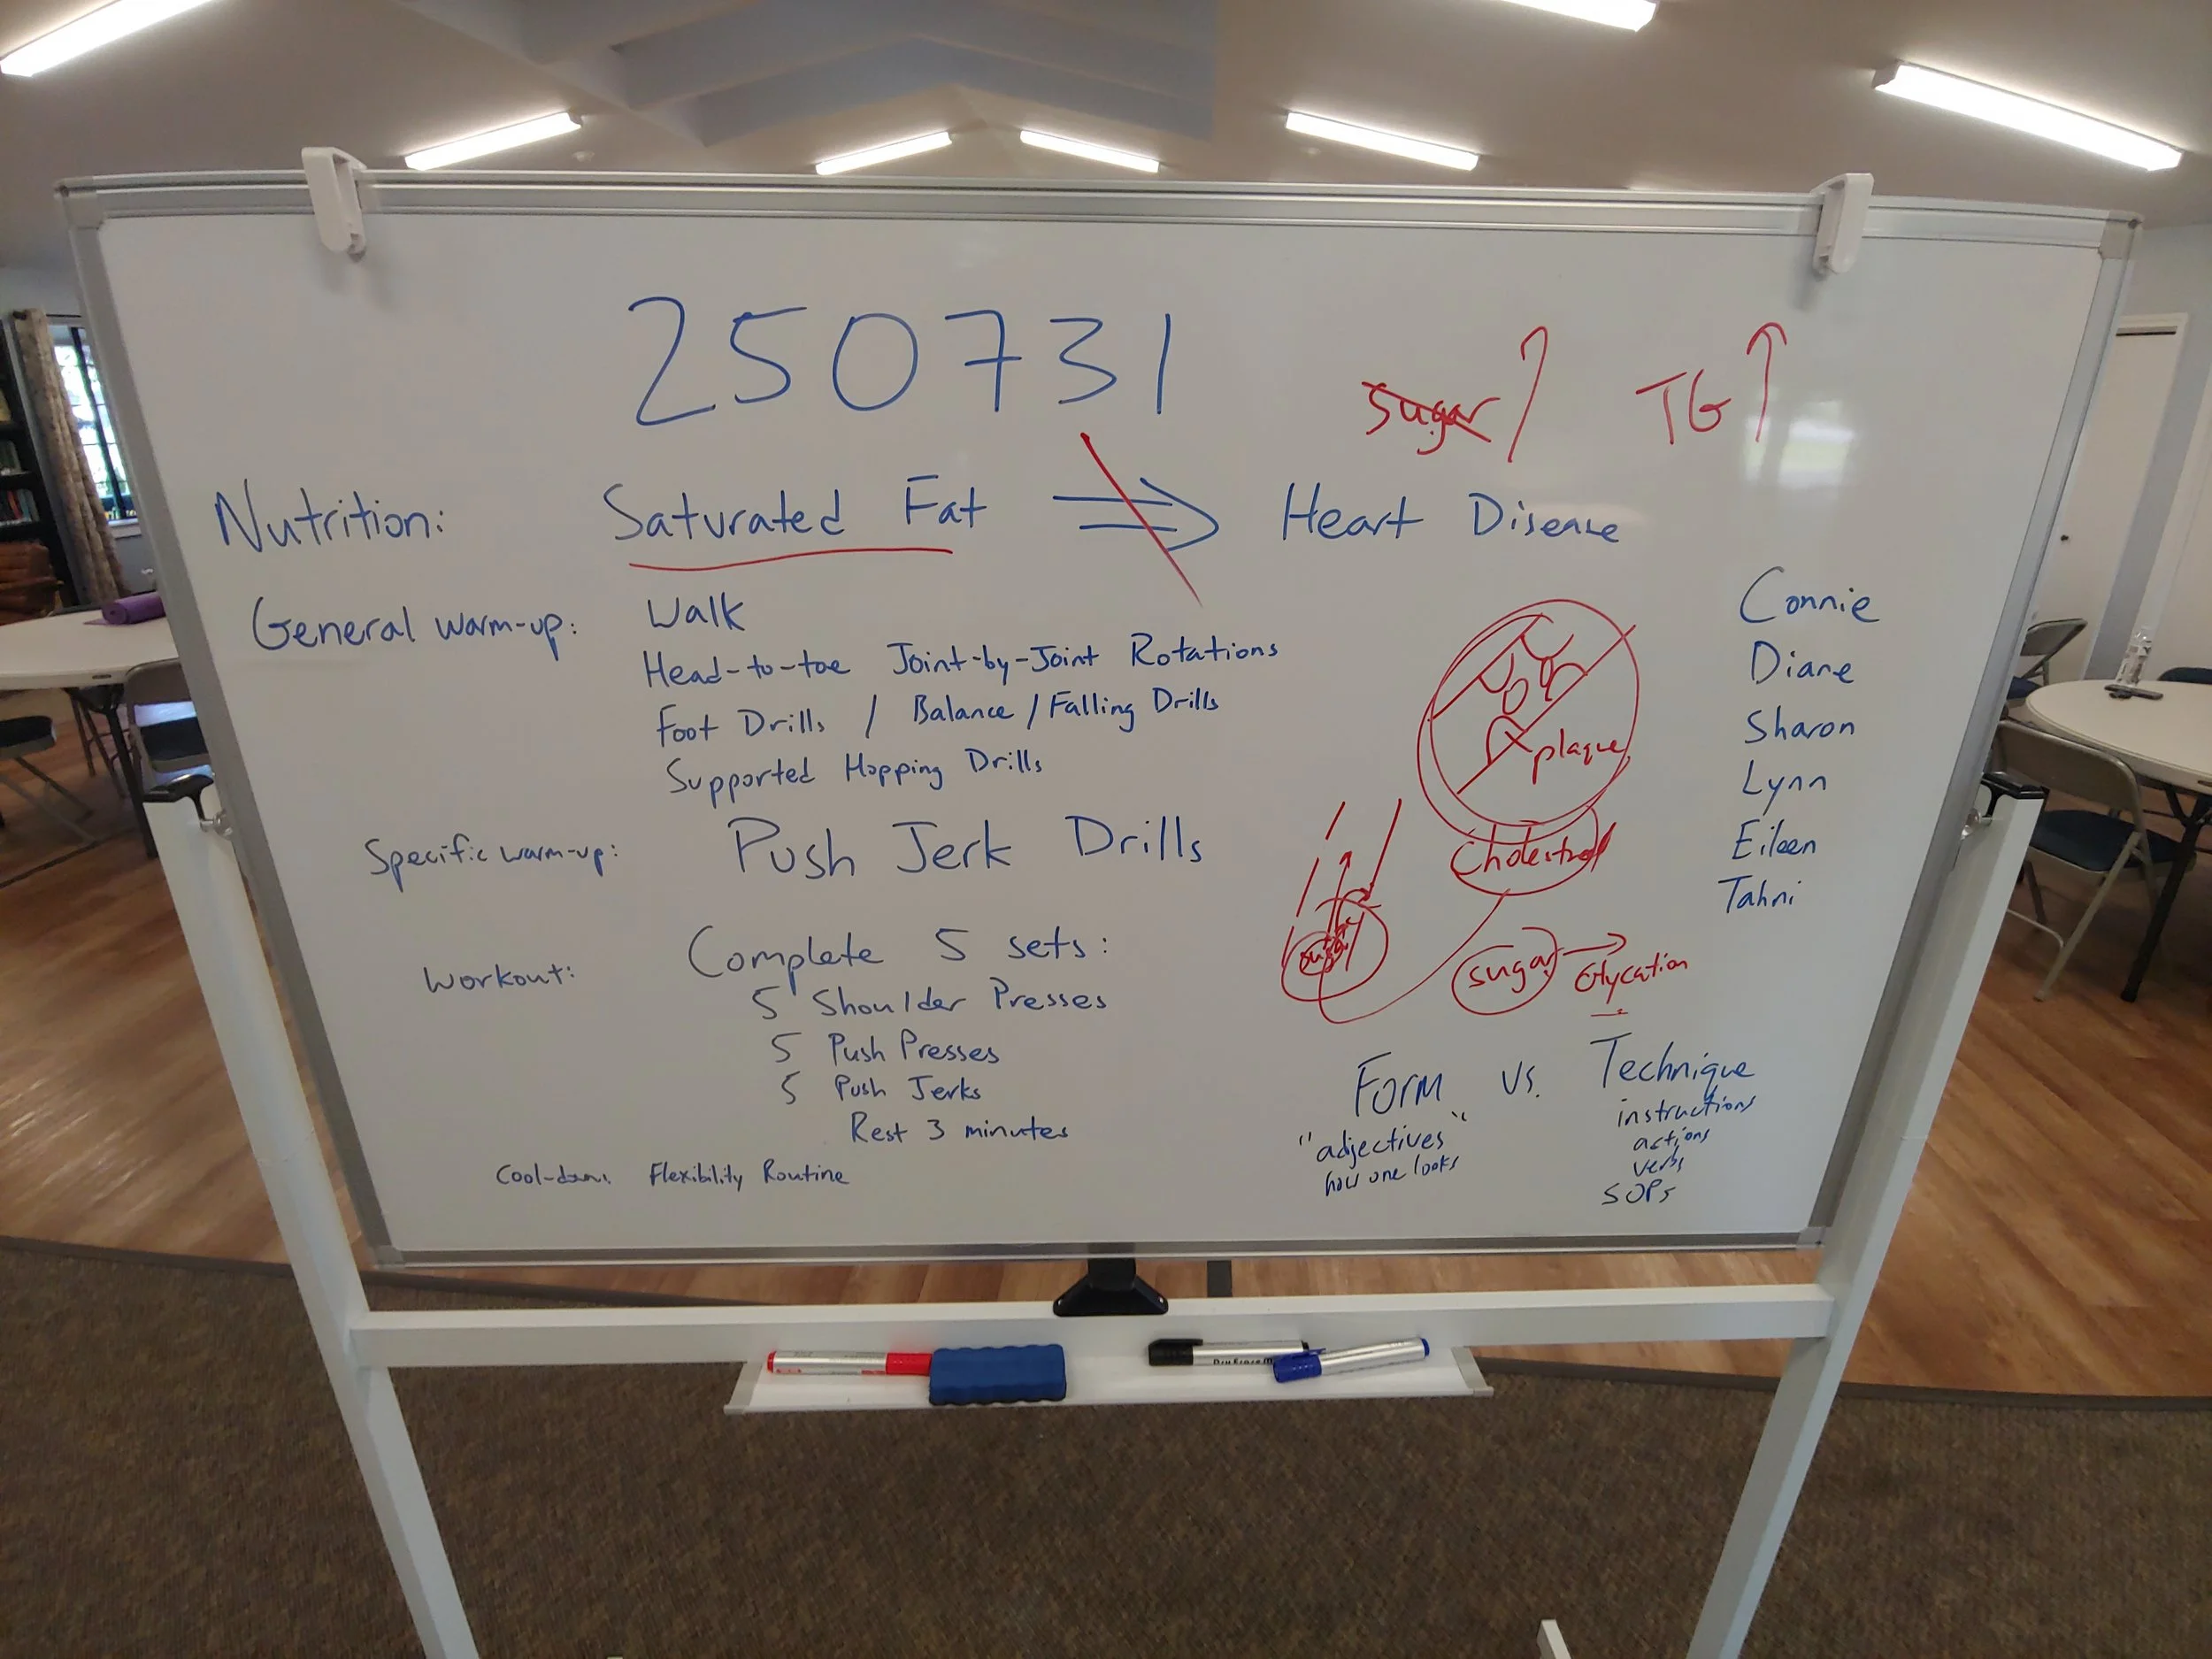 250731
sugar TG
Nutrition: Saturated Fat Heart Disease
General warm-up: Walk
Head-to-toe Joint-by-Joint Rotations
Foot Drills / Balance / Falling Drills
Supported Hopping Drills
Specific warm-up: Push Jerk Drills
Workout: Complete 5 sets:
5 Shoulder Presses
5 Push Presses
5 Push Jerks
Rest 3 minutes
Cool-down: Flexibility Routine
plaque
Cholesterol
sugar
sugar → Glycation
Connie
Diane
Sharon
Lynn
Eileen
Tahni
Form vs. Technique
"adjectives"
how one looks
instructions
actions
verbs
SOPs
Dry Erase M